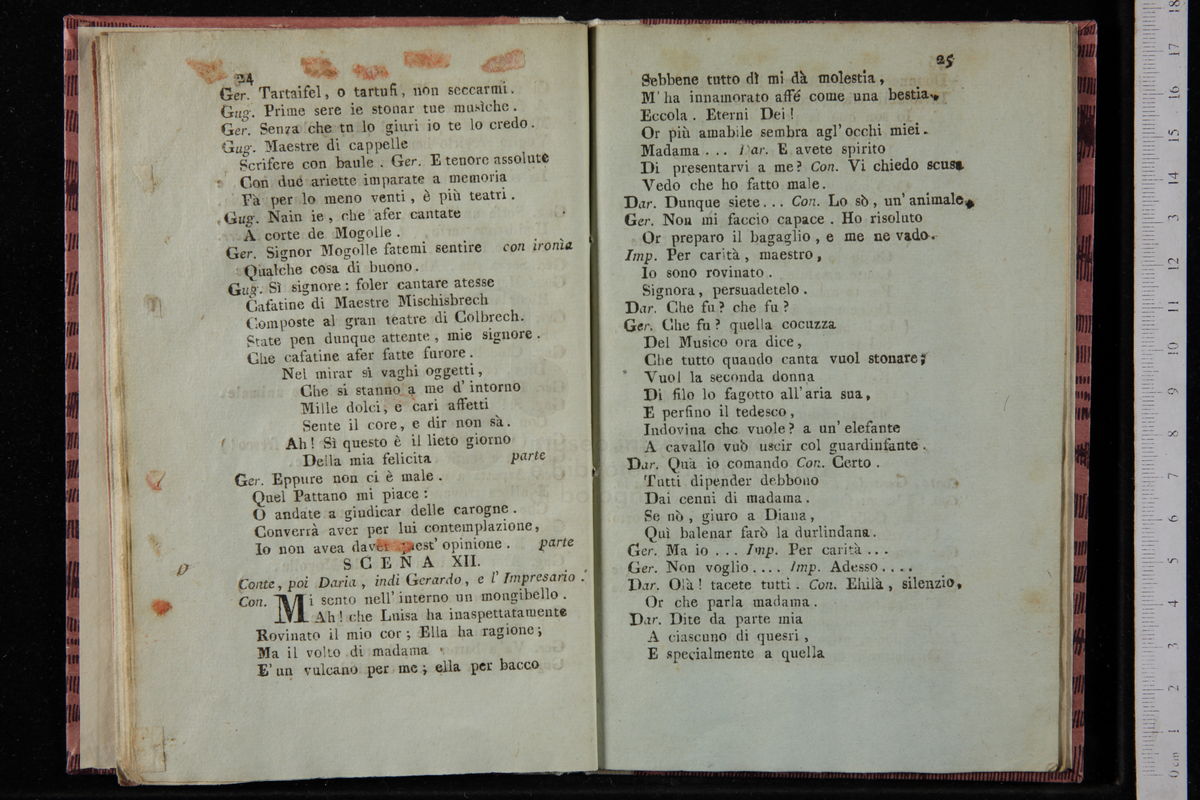 24
Ger. Tartaifel, o tartufi, non seccarmi.
Gug. Prime sere ie stonar tue musiche.
Ger. Senza che tn lo giuri io te lo credo.
Gug. Maestre di cappelle
Scrifere con baule. Ger. E tenore assolute
Con due ariette imparate a memoria
Fa per lo meno venti, è più teatri.
Gug. Nain ie, che afer cantate
A corte de Mogolle.
Ger. Signor Mogolle fatemi sentire con ironìa
Qualche cosa di buono.
Gug. Sì signore: foler cantare atesse
Cafatine di Maestre Mischisbrech
Composte al gran teatre di Colbrech.
State pen dunque attente, mie signore.
Che cafatine afer fatte furore.
Nel mirar sì vaghi oggetti,
Che si stanno a me d'intorno
Mille dolci, e cari affetti
Sente il core, e dir non sà.
Ah! Sì questo è il lieto giorno
Della mia felicita parte
Ger. Eppure non ci è male.
Quel Pattano mi piace:
O andate a giudicar delle carogne.
Converrà aver per lui contemplazione,
Io non avea daver quest' opinione. parte
SCENA XII.
Conte, poi Daria, indi Gerardo, e l'Impresario.
Con. Mi sento nell'interno un mongibello.
Ah! che Luisa ha inaspettatamente
Rovinato il mio cor; Ella ha ragione;
Ma il volto di madama
E' un vulcano per me; ella per bacco
25
Sebbene tutto dì mi dà molestia,
M'ha innamorato affé come una bestia.
Eccola. Eterni Dei!
Or più amabile sembra agl'occhi miei.
Madama... Dar. E avete spirito
Di presentarvi a me? Con. Vi chiedo scusa
Vedo che ho fatto male.
Dar. Dunque siete... Con. Lo sò, un'animale.
Ger. Non mi faccio capace. Ho risoluto
Or preparo il bagaglio, e me ne vado.
Imp. Per carità, maestro,
Io sono rovinato.
Signora, persuadetelo.
Dar. Che fu? che fu?
Ger. Che fu? quella cocuzza
Del Musico ora dice,
Che tutto quando canta vuol stonare;
Vuol la seconda donna
Di filo lo fagotto all'aria sua,
E perfino il tedesco,
Indovina che vuole? a un'elefante
A cavallo vuò uscir col guardinfante.
Dar. Quà io comando Con. Certo.
Tutti dipender debbono
Dai cenni di madama.
Se nò, giuro a Diana,
Quì balenar farò la durlindana.
Ger. Ma io... Imp. Per carità...
Ger. Non voglio.... Imp. Adesso....
Dar. Olà! tacete tutti. Con. Ehilà, silenzio,
Or che parla madama.
Dar. Dite da parte mia
A ciascuno di quesri,
E specialmente a quella